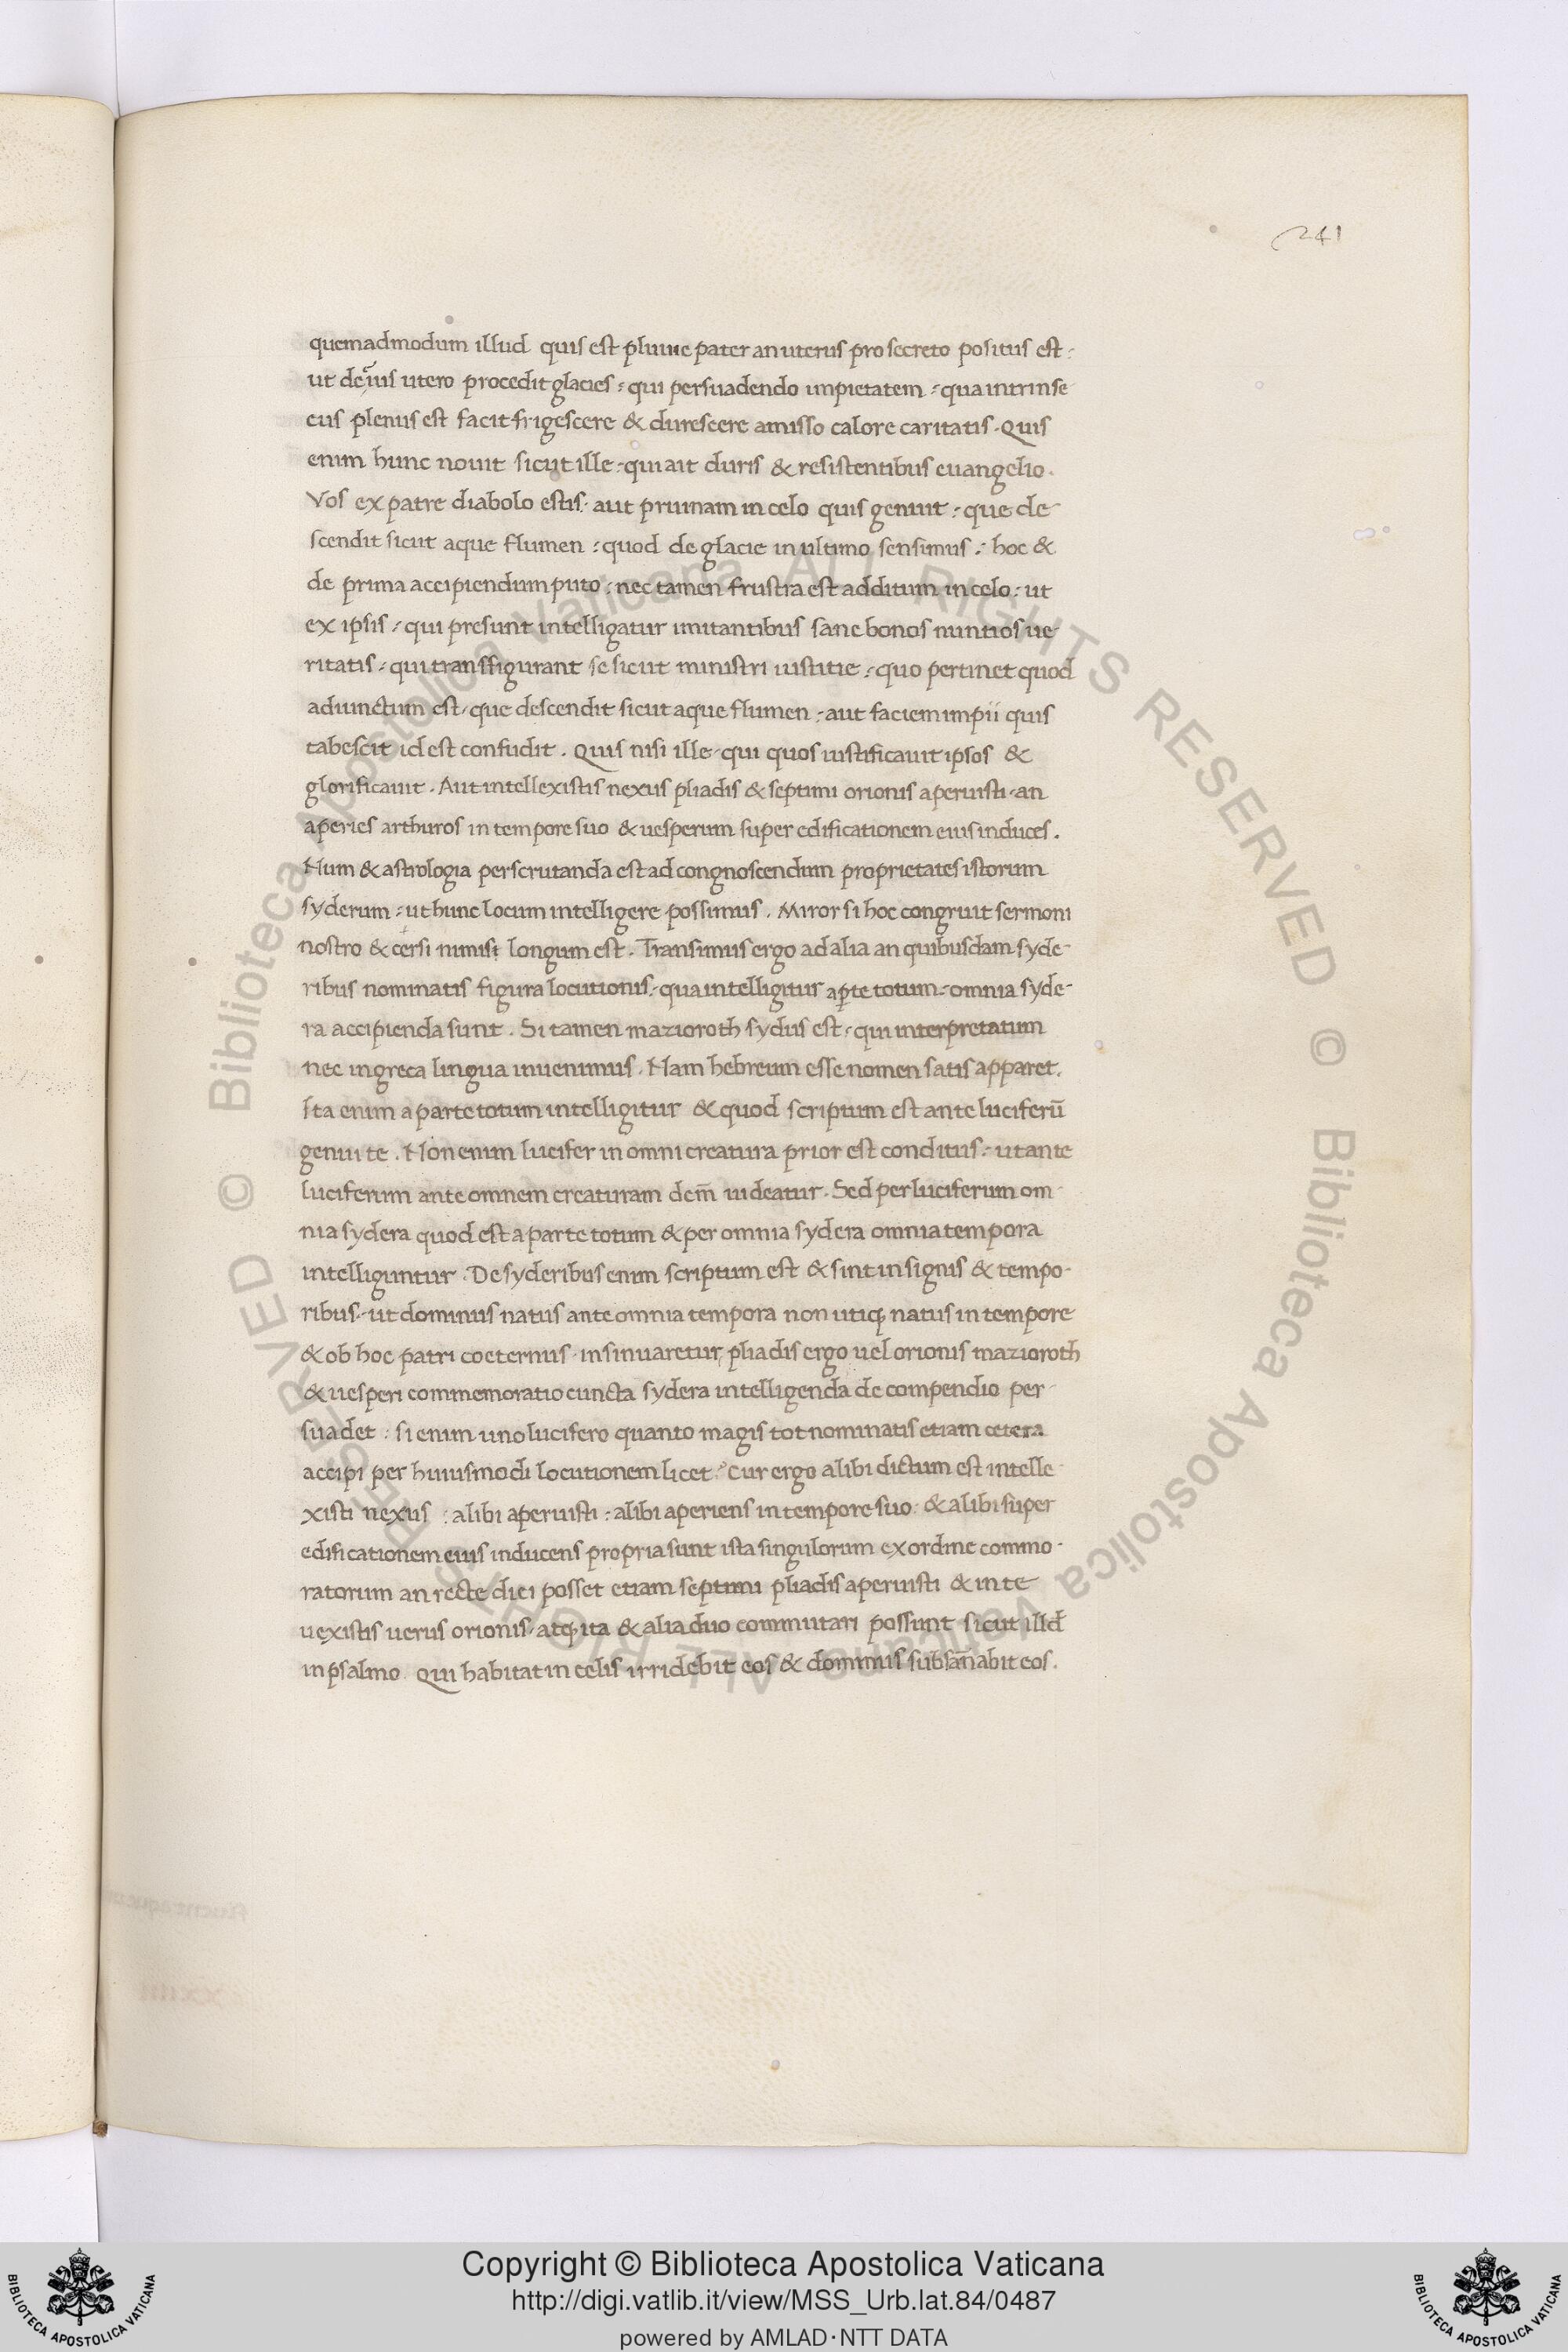 241
quemadmodum illud quis est pluuie pater an uterus pro secreto positus est :
ut de cuius utero procedit glacies : qui persuadendo impietatem : qua intrinse
cus plenus est facit frigescere & durescere amisso calore caritatis . Quis
enim hunc nouit sicut ille : qui ait duris & resistentibus euangelio .
Vos ex patre diabolo estis . aut pruinam in celo quis genuit : que de
scendit sicut aque flumen : quod de glacie in ultimo sensimus : hoc &
de prima accipiendum puto : nec tamen frustra est additum in celo : ut
ex ipsis : qui presunt intelligatur imitantibus sane bonos nuntios ue
ritatis : qui transfigurant se sicut ministri iustitie : quo pertinet quod
adiunctum est . que descendit sicut aque flumen : aut faciem impii quis
tabescit id est confudit . Quis nisi ille qui quos iustificauit ipsos &
glorificauit . Aut intellexistis nexus pliadis & septimi orionis aperuisti . an
aperies arthuros in tempore suo & uesperum super edificationem eius induces .
Num & astrologia perscrutanda est ad congnoscendum proprietates istorum
syderum : ut hunc locum intelligere possimus . Miror si hoc congruit sermoni
nostro & longum est . Transimus ergo ad alia an quibusdam syde-
ribus nominatis figura locutionis : qua intelligitur aparte totum : omnia syde-
ra accipienda sunt . Si tamen mazioroth sydus est : qui interpretatum
nec in greca lingua inuenimus . Nam hebreum esse nomen satis apparet .
Ita enim a parte totum intelligitur & quod scriptum est ante luciferū
genui te . Non enim lucifer in omni creatura prior est conditus : ut ante
luciferum ante omnem creaturam dem̄ uideatur . Sed per luciferum om
nia sydera quod est a parte totum & per omnia sydera omnia tempora
intelliguntur . De syderibus enim scriptum est & sint in signis & tempo-
ribus . ut dominus natus ante omnia tempora non utiq; natus in tempore
& ob hoc patri coeternus . insinuaretur pliadis ergo uel orionis mazioroth
& uesperi commemoratio cuncta sydera intelligenda de compendio per
suadet : si enim uno lucifero quanto magis tot nominatis etiam cetera
accipi per huiusmodi locutionem licet ? Cur ergo alibi dictum est intelle
xisti nexus : alibi aperuisti : alibi aperiens in tempore suo : & alibi super
edificationem eius inducens propria sunt ista singulorum ex ordine commo-
ratorum an recte dici posset etiam septimi pliadis aperuisti & inte
uexistis uerus orionis . atq; ita & alia duo commutari possunt sicut illd
in psalmo . Qui habitat in celis irridebit eos & dominus subsānabit eos .
© Biblioteca Apostolica Vaticana ALL RIGHTS RESERVED © Biblioteca Apostolica Vaticana ALL RIGHTS RESERVED
Copyright © Biblioteca Apostolica Vaticana
http://digi.vatlib.it/view/MSS_Urb.lat.84/0487
powered by AMLAD·NTT DATA
BIBLIOTECA APOSTOLICA VATICANA
BIBLIOTECA APOSTOLICA VATICANA